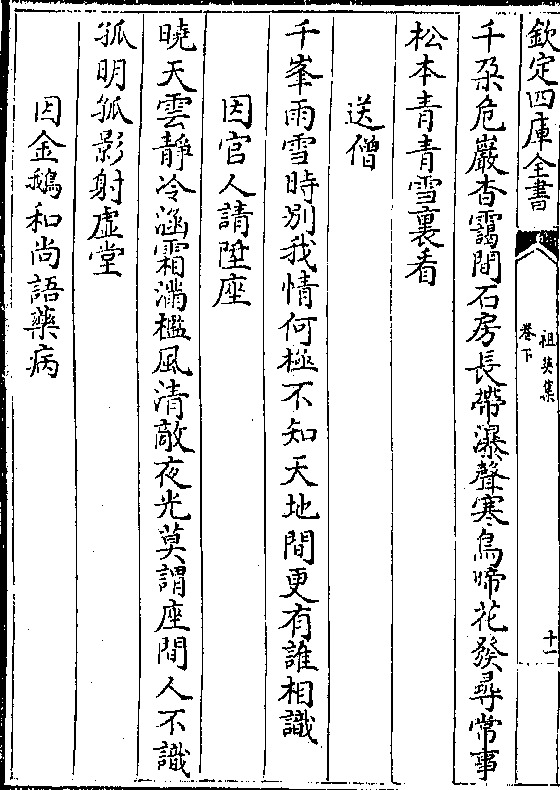 欽定四庫全書
祖英集
卷下
十一
千朶危巖杳靄間石房長帶瀑聲寒鳥啼花發尋常事
松本青青雪裏看
送僧
千峯雨雪時別我情何極不知天地間更有誰相識
因官人請陞座
曉天雲靜冷涵霜滿檻風清敵夜光莫謂座間人不識
孤明孤影射虛堂
因金鵝和尚語藥病